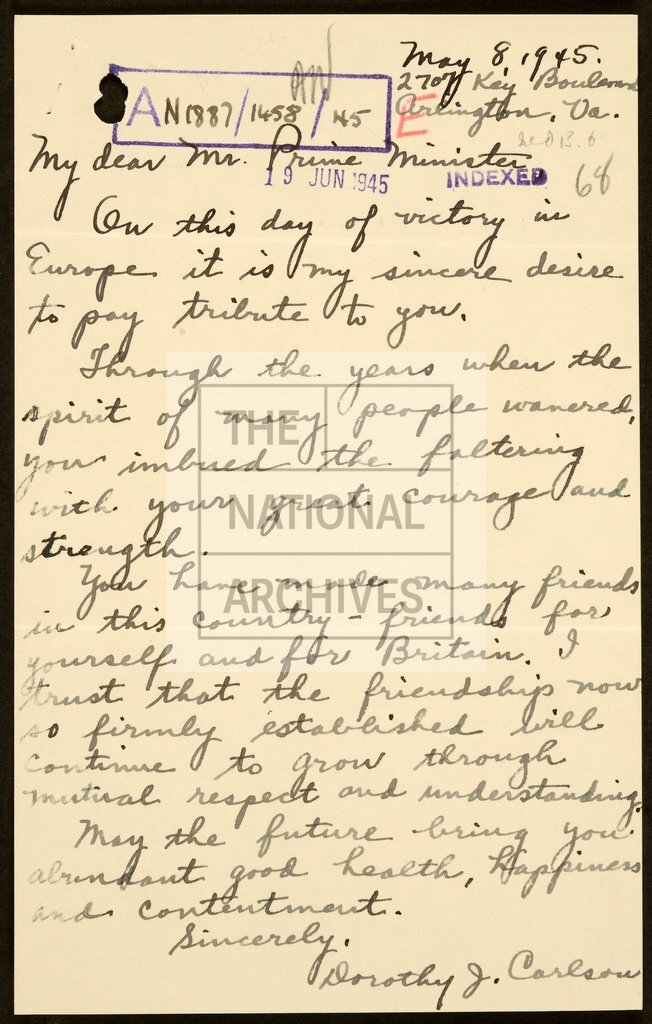 May 8, 1945.
2707 Key Boulevard
Arlington, Va.
AN
AN1887/1458/45
E
My dear Mr. Prime Minister
19 JUN 1945
INDEXED
68
On this day of victory in
Europe it is my sincere desire
to pay tribute to you.
Through the years when the
spirit of many people wavered,
you imbued the faltering
with your great courage and
strength.
You have made many friends
in this country - friends for
yourself and for Britain. I
trust that the friendship now
so firmly established will
continue to grow through
mutual respect and understanding.
May the future bring you
abundant good health, happiness
and contentment.
Sincerely,
Dorothy J. Carlson
THE
NATIONAL
ARCHIVES